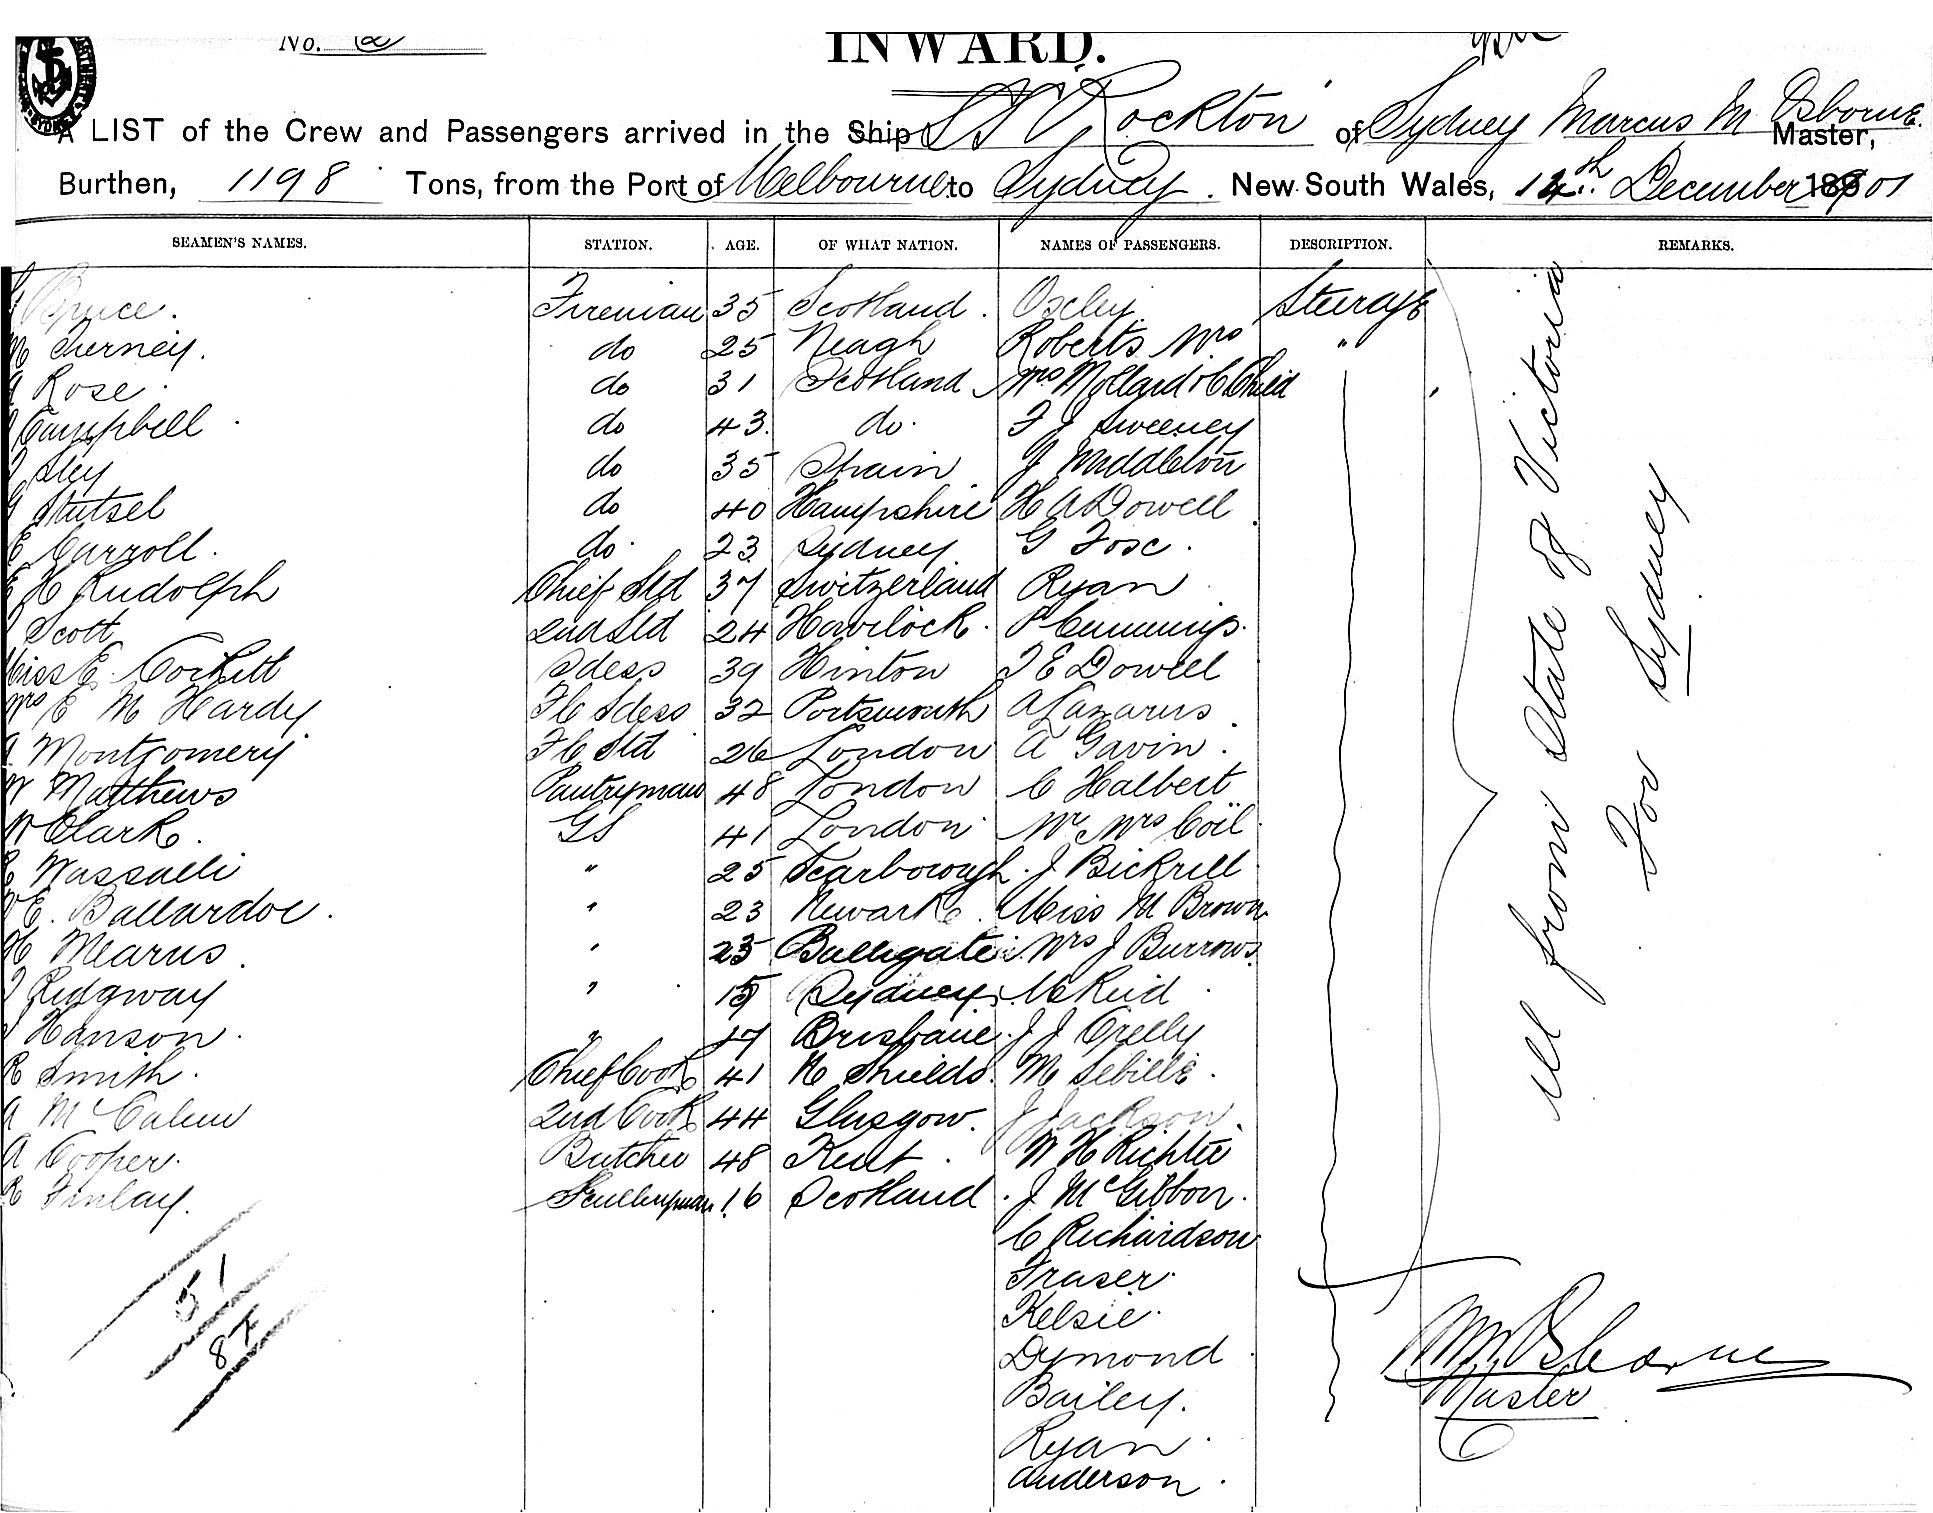 No. 2
INWARD.
A LIST of the Crew and Passengers arrived in the Ship SS Rockton of Sydney Marcus M Osborne Master,
Burthen, 1198 Tons, from the Port of Melbourne to Sydney. New South Wales, 14th December 1901
SEAMEN'S NAMES. STATION. AGE. OF WHAT NATION. NAMES OF PASSENGERS. DESCRIPTION. REMARKS.
Bruce. Fireman 35 Scotland. Oxley Steerage
Tierney. do 25 Neagh Roberts Mrs "
Rose do 31 Scotland Mrs Mollard & Child
Campbell do 43. do. F J Sweeney
Sley do 35 Spain J Middleton
Stutsel do 40 Hampshire H A Dowell
E Carroll. do. 23 Sydney G Fosc.
E H Rudolph Chief Std 37 Switzerland Ryan
Scott 2nd Std 24 Havelock. P Cummings.
Miss E. Corkett Sdess 39 Hinton T E Dowell
Mrs E M Hardy FC Sdess 32 Portsmouth A Lazarus
A Montgomery FC Std 26 London A Gavin.
W Matthews Pantryman 48 London C Halbert
W Clark. GS 41 London Mr Mrs Coil
Wassalli " 25 Scarborough. J Bickrell
E. Ballardoe. " 23 Newark. Miss M Brown
H Mearns. " 23 Mrs J Burrows.
Ridgway " 15 Sydney. McReid
Hanson. " 17 Brisbane. J J Crelly
R Smith. Chief Cook 41 N Shields. M Sebille.
A McCalum 2nd Cook 44 Glasgow. J Jackson
A Cooper. Butcher 48 Kent. W H Richter
R Finlay. Sculleryman 16 Scotland. J McGibbon.
C Richardson
Fraser.
Kelsie.
Dymond
Bailey.
Ryan
Anderson.
All from State of Victoria
For Sydney
51
84
M M Osborne
Master